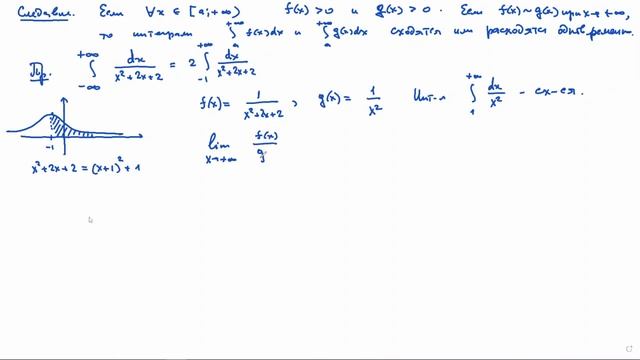 Следствие. Если ∀x ∈ [a;+∞) f(x) > 0 и g(x) > 0. Если f(x) ~ g(x) при x→+∞,
то интегралы ∫ₐ^{+∞} f(x)dx и ∫ₐ^{+∞} g(x)dx сходятся или расходятся одновременно.
Пр. ∫_{-∞}^{+∞} dx/(x²+2x+2) = 2 ∫_{-1}^{+∞} dx/(x²+2x+2)
f(x) = 1/(x²+2x+2), g(x) = 1/x² Инт-л ∫₁^{+∞} dx/x² - сх-ся.
-1
x²+2x+2 = (x+1)²+1
lim_{x→+∞} f(x)/g